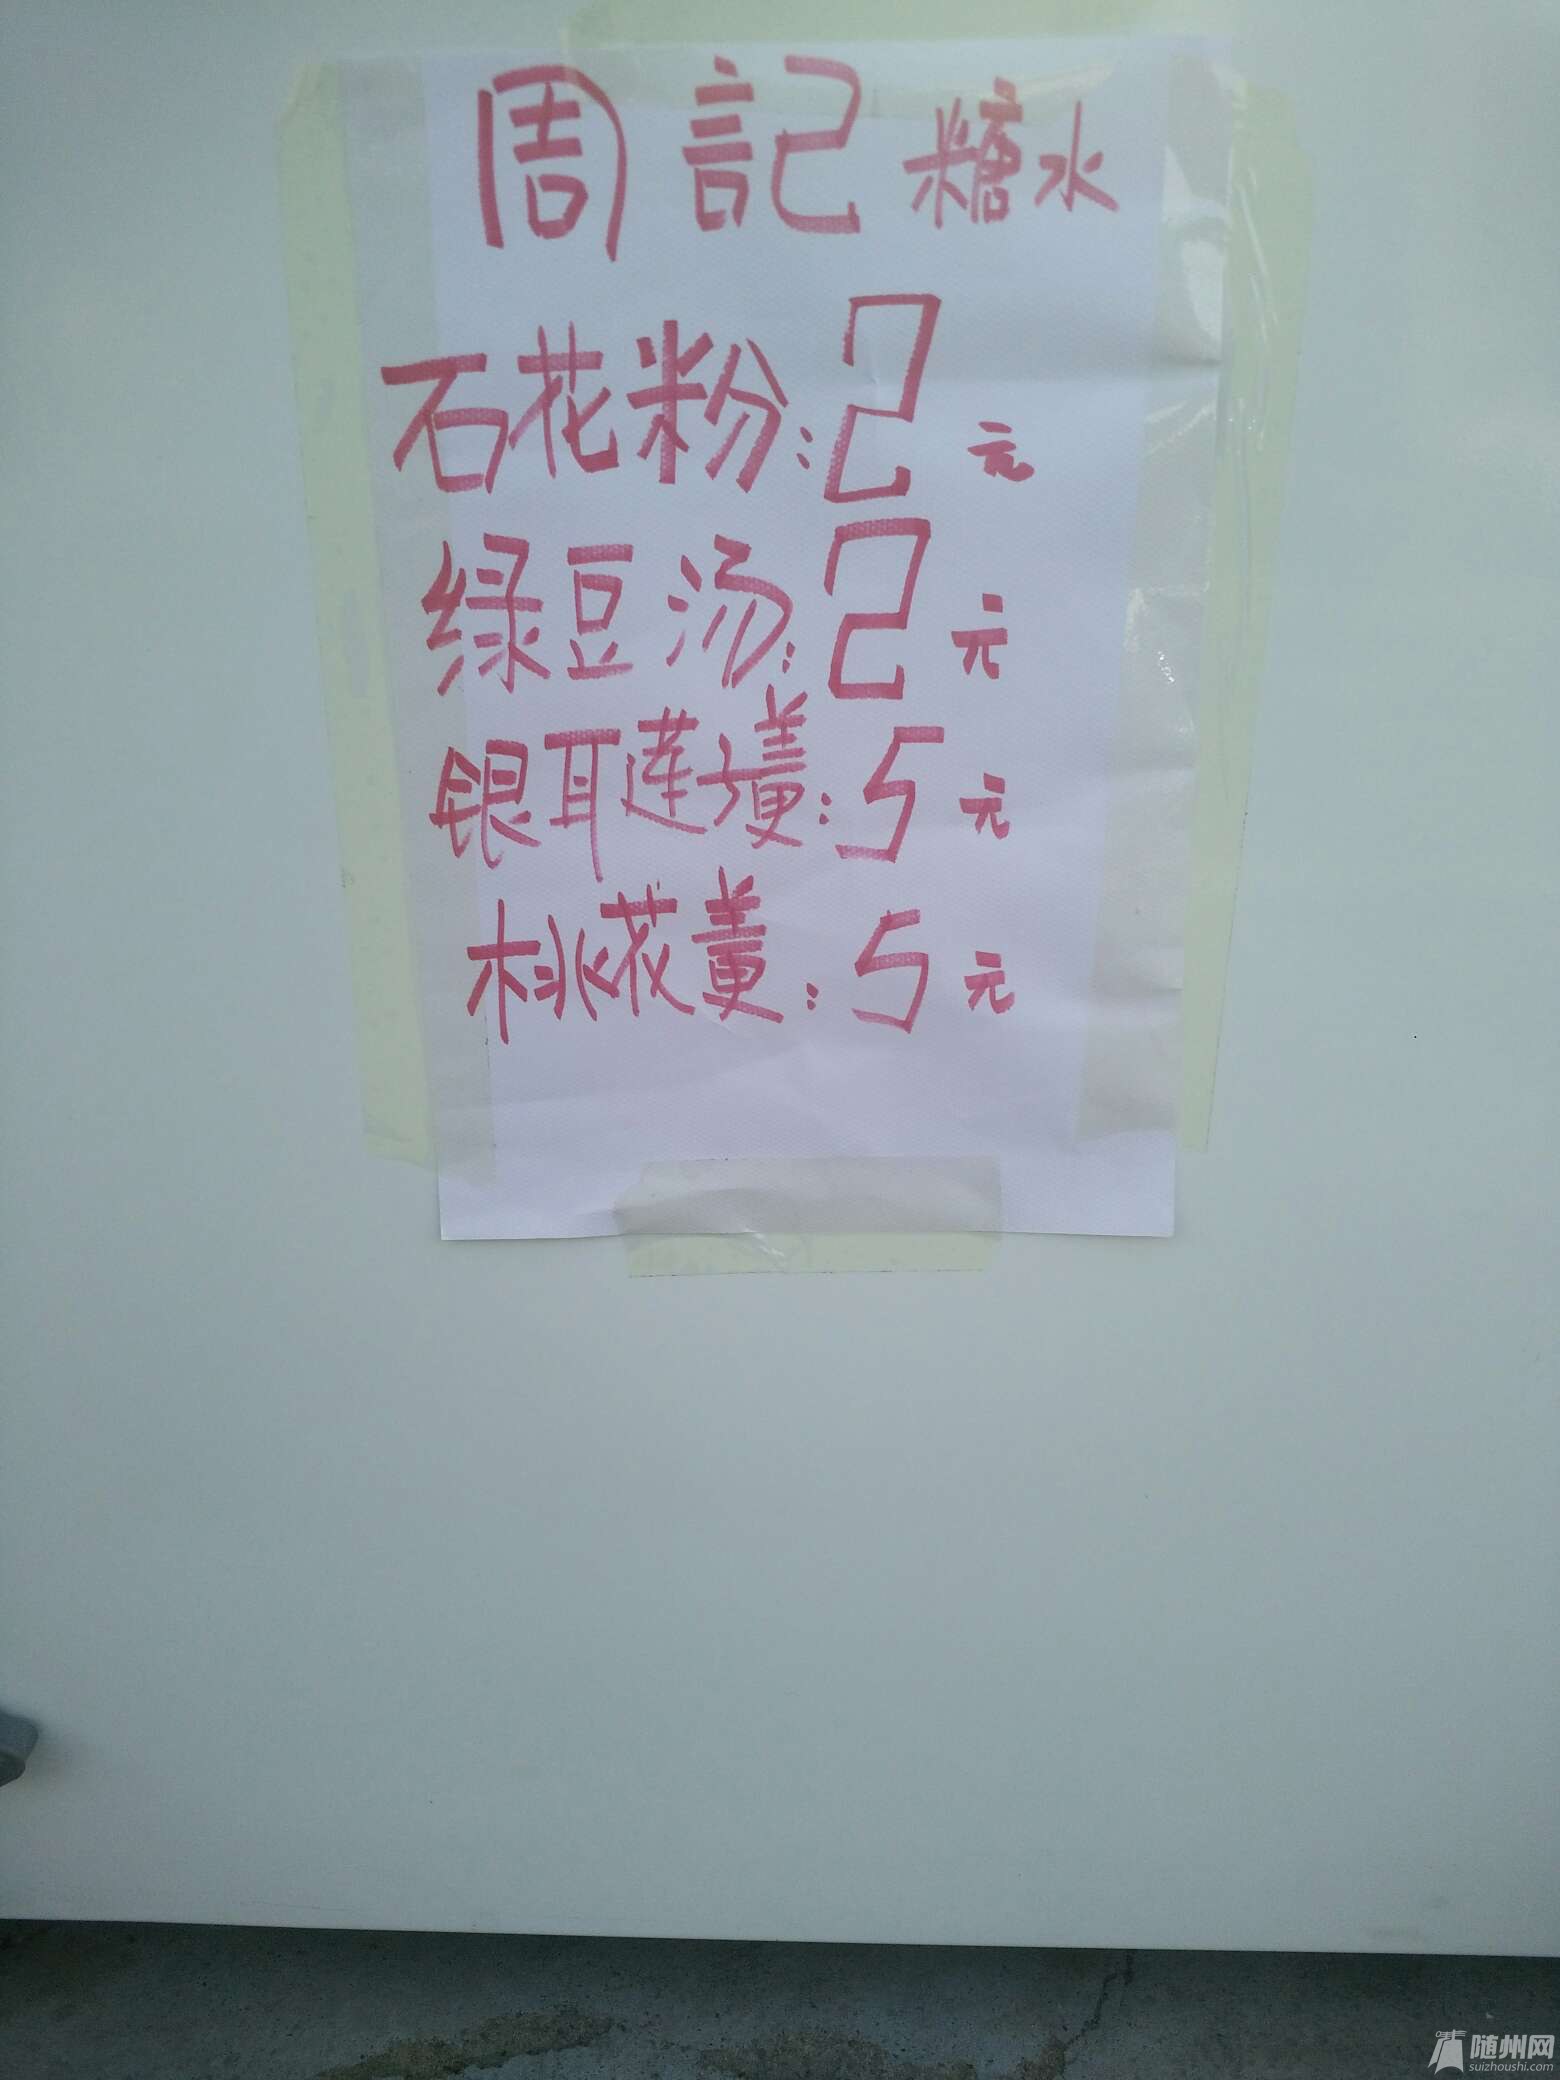 周記糖水
石花粉:2元
绿豆汤:2元
银耳莲子羹:5元
桃花羹:5元
随州网
suizhoushi.com